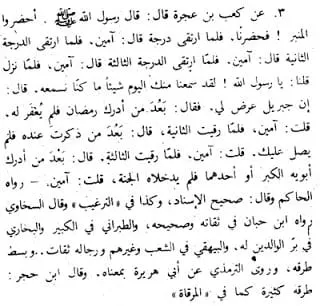 ٣. عن كعب بن عجرة قال: قال رسول الله ﷺ. أحضروا
المنبر! فحضرنا. فلما ارتقى درجة قال: آمين. فلما ارتقى الدرجة
الثانية قال: آمين. فلمّا ارتقى الدرجة الثالثة قال: آمين، فلمّا نزل
قلنا: يا رسول الله! لقد سمعنا منك اليوم شيئاً ما كنّا نسمعه. قال:
إن جبريل عرض لي. فقال: بَعُدَ من أدرك رمضان فلم يُغفر له.
قلت: آمين، فلمّا رقيت الثانية، قال: بَعُدَ من ذكرتَ عنده فلم
يصل عليك. قلت: آمين، فلمّا رقيت الثالثة. قال: بَعُدَ من أدرك
أبويه الكبر أو أحدهما فلم يدخلاه الجنة، قلت: آمين. – رواه
الحاكم وقال: صحيح الإسناد، وكذا في «الترغيب» وقال السخاوي
رواه ابن حبان في ثقاته وصحيحه، والطبراني في الكبير والبخاري
في برّ الوالدين له، والبيهقي في الشعب وغيرهم ورجاله ثقات.. وبسط
طرقه، وروى الترمذي عن أبي هريرة بمعناه. وقال ابن حجر:
طرقه كثيرة كما في «المرقاة»